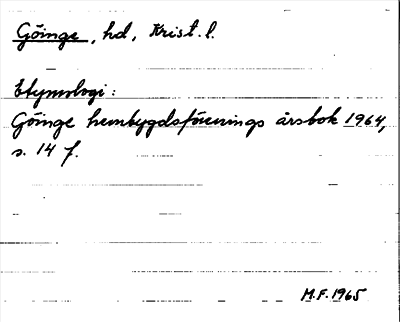 Göinge, hd, Krist. l.
Etymologi:
Göinge hembygdsförenings årsbok 1964,
s. 14 f.
M.F. 1965